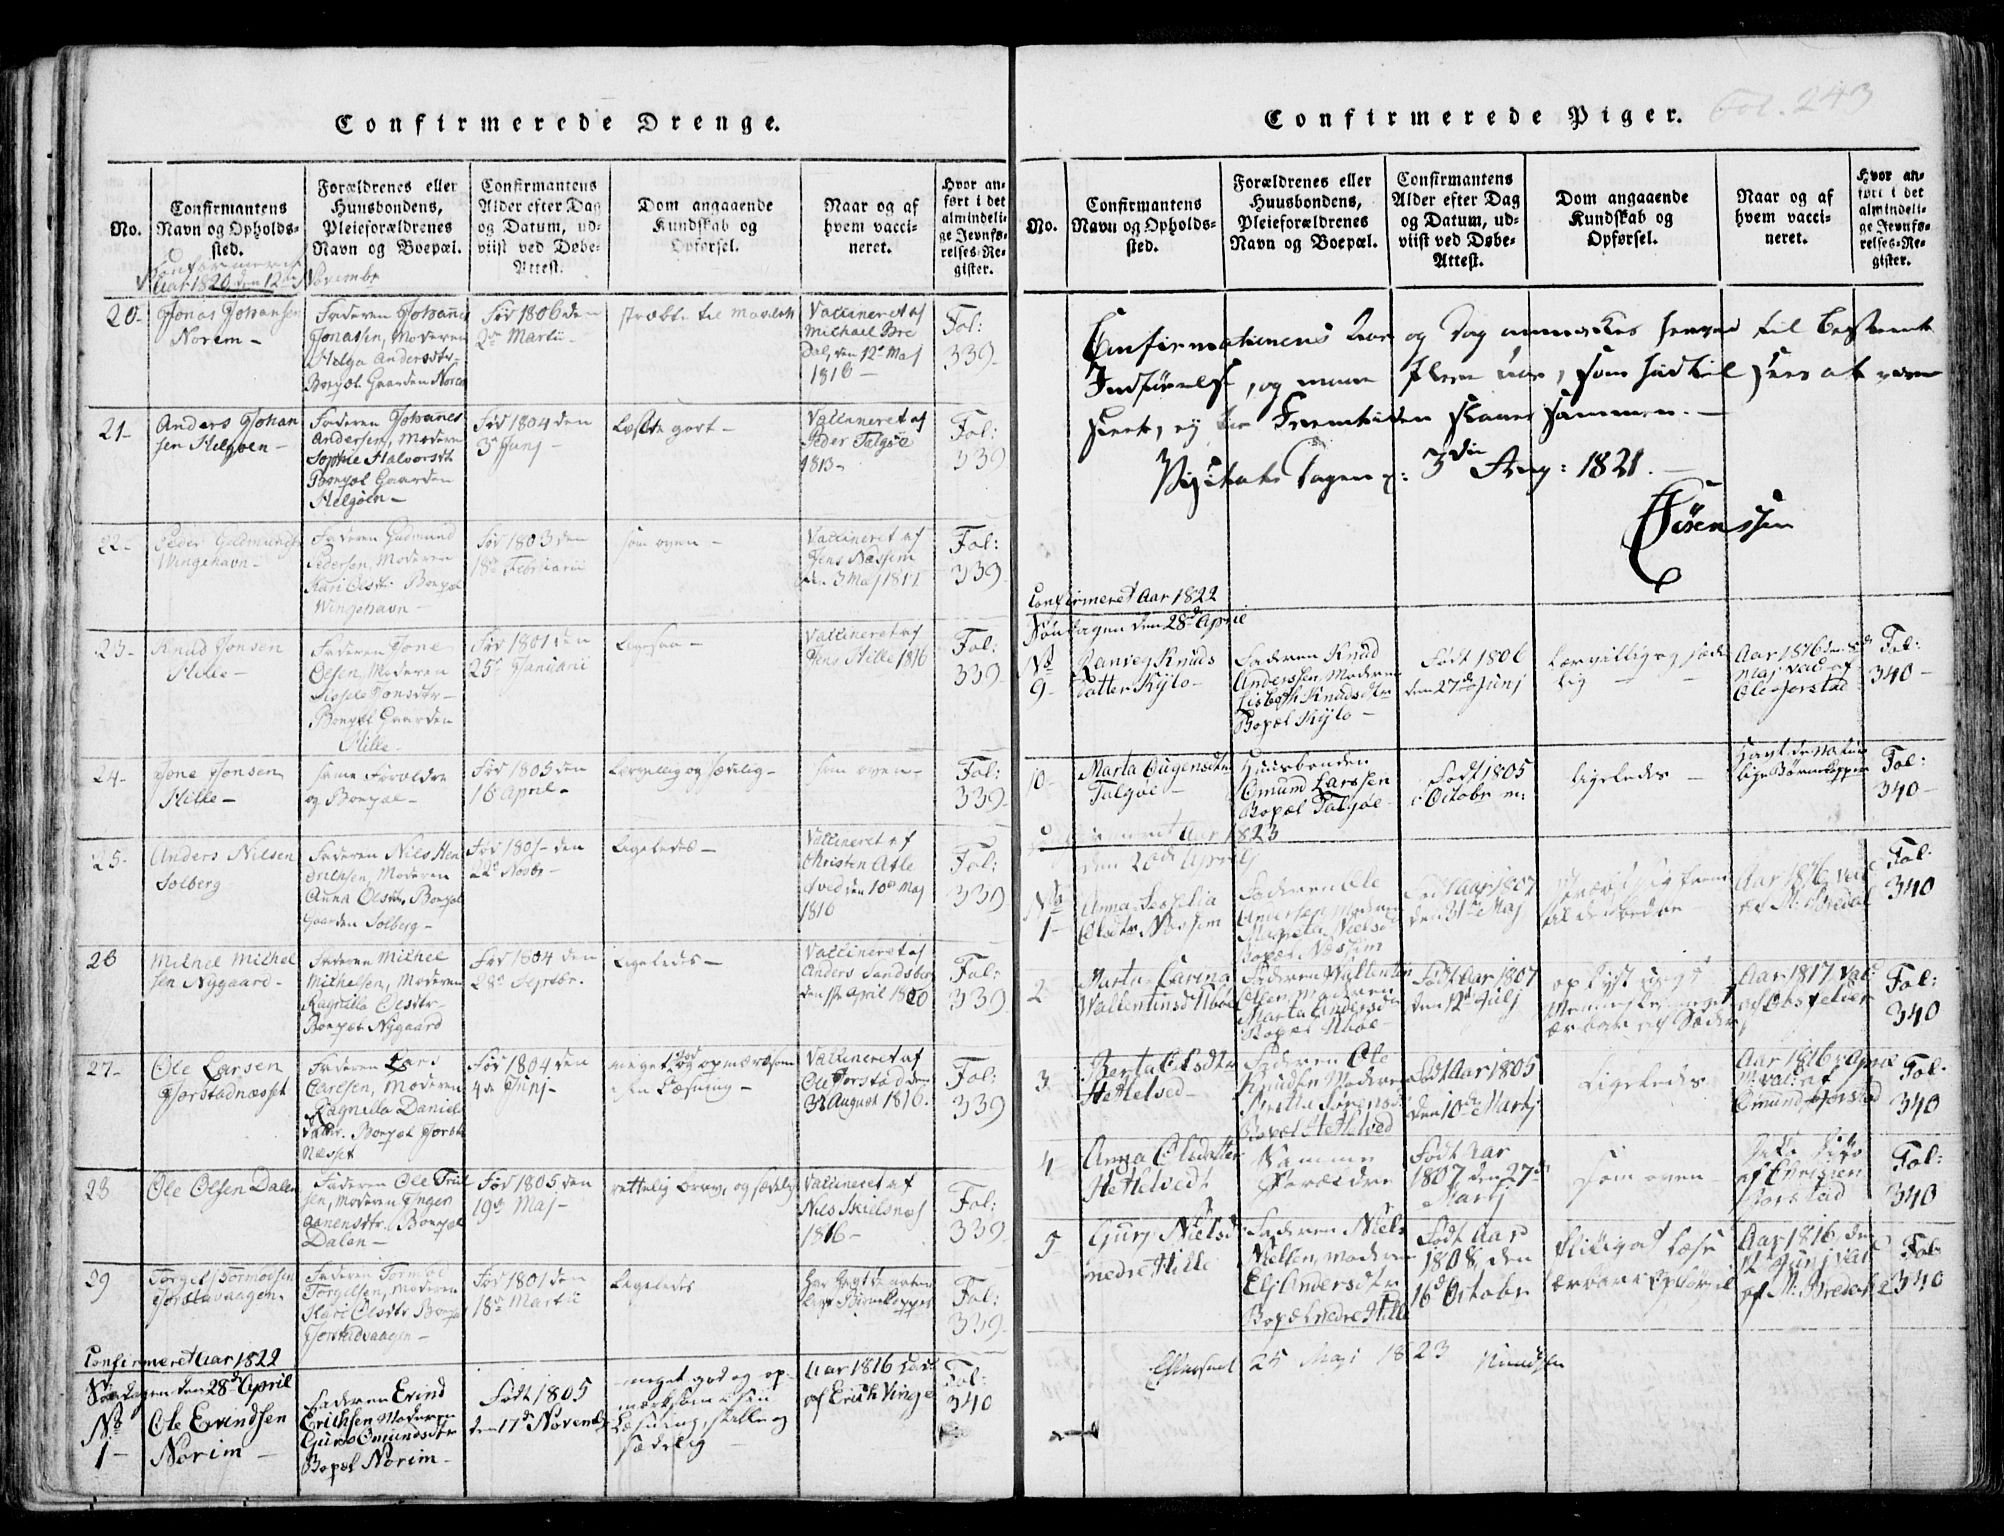 Confirmerede Drenge.
No.
Confirmantens
Navn og Opholds-
sted.
Forældrenes eller
Huusbondens,
Pleieforældrenes
Navn og Boepæl.
Confirmantens
Alder efter Dag
og Datum, ud-
viist ved Døbe-
Attest.
Dom angaaende
Kundskab og
Opførsel.
Naar og af
hvem vacci-
neret.
Hvor an-
ført i det
almindeli-
ge Jevnfø-
relses-Re-
gister.
Confirmeret
Aar 1820 den 12te Novembr
20-
Jonas Johansen
Norem-
Faderen Johannes
Jonasen, Moderen
Helga Andersdtr-
Boepæl Gaarden Norem
Fød 1806 den
2den Martii-
stræbte til
Vaccineret af
Michael Bre
Dal, den 12te Maj
1816-
Fol:
339-
21-
Anders Johan
sen Helgøen-
Faderen Johanes
Andersen, Moderen
Sophie Halvorsdtr
Boepæl Gaarden
Helgøen-
Fød 1804 den
3de Junj-
Læste godt-
Vaccineret af
Peder Talgøe
1813-
Fol:
339
22-
Peder Gudmunds
Wingehavn-
Faderen Gudmund
Pedersen, Moderen
Kari Olsdtr Boepæl
Wingehavn-
Fød 1803 den
18de Februarii
som oven-
Vaccineret af
Jens Næssem
den 3 Maj 1811
Fol:
339-
23-
Knud Jonsen
Hille-
Faderen Jone
Olsen, Moderen
Sissele Jonsdtr-
Boepæl Gaarden
Hille-
Fød 1801 den
25de Januarii
Ligesaa-
Vaccineret af
Jens Hille 1816
Fol:
339-
24-
Jone Jonsen
Hille-
samme Forældre
og Boepæl-
Fød 1805 den
16 April-
Lærvillig og sædelig-
som oven-
Fol:
339-
25-
Anders Nilsen
Solberg
Faderen Nils Hen
drichsen, Moderen
Anna Olsdtr, Boepæl
Gaarden Solberg-
den
22de Novbr-
Ligeledes-
Vaccineret af
Christen Asle
den 10de Maj
1816
Fol:
339
26
Michel Michel
sen Nygaard-
Faderen Michel
Michelsen, Moderen
Ragnilla Olsdtr-
Boepæl Nygaard
Fød 1804 den
28de Septebr.
Ligeledes-
Vaccineret af
Anders Sandsber
den 1ste April 1810
Fol:
339-
27-
Ole Larsen
Jørstadnæsset
Faderen Lars
Carlsen, Moderen
Ragnilla Daniels
datter. Boepæl Jørsta
Næsset
Fød 1804 den
4de Junj-
meget god og opmærksom
i sin Læsning-
Vaccineret af
Ole Jorstad den
3de August 1816.
Fol:
339
28
Ole Olsen Dalen
Faderen Ole Trul
sen, Moderen Inger
Boepæl
Dalen-
Fød 1805 den
19de Maj-
og sædelig
Vaccineret af
Nils Skielsnæs
1816-
Fol:
339-
29
Torgels Tormodsen
Jørstavaagen-
Faderen Tormod
Torgelsen, Moderen
Kari Olsdtr Boepæl
Jørstadvaagen-
Fød 1801 den
18de Martii
Ligeledes
har havt de naturlige
Børnekopper
Fol:
339-
Confirmeret Aar 1822
Søndagen den 28de April
No
1-
Ole Evindsen
Norim-
Faderen Evind
Erichsen Moderen
Guro Omundsdtr
Bopæl Norim-
Født 1805
den 17de Novembr
meget god og op-
mærksom i sin
Læsning, stille og
sædelig-
Aar 1816 vacc
af Erich Vinge
Fol:
340
Confirmerede Piger.
Fol. 243
No.
Confirmantens
Navn og Opholds-
sted.
Forældrenes eller
Huusbondens,
Pleieforældrenes
Navn og Boepæl.
Confirmantens
Alder efter Dag
og Datum, ud-
viist ved Døbe-
Attest.
Dom angaaende
Kundskab og
Opførsel.
Naar og af
hvem vacci-
neret.
Hvor an-
ført i det
almindeli-
ge Jevnfø-
relses-Re-
gister.
Confirmationens Aar og Dag anmærkes herved til bestemt
Indførelse, og maae flere Aar, som hidtil sees at være
skeet, ej for Fremtiden slaaes sammen.-
Visitats Dagen d: 3die Aug: 1821.-
Sørenssen
Confirmeret Aar 1822
Søndagen den 28de April
No
9-
Ranveg Knuds
datter Kylo-
Faderen Knud
Anderssen, Moderen
Lisbeth Knudsdtr
Bopæl Kylo-
Født 1806
den 27de Junj
Lærvillig og sæde
lig
Aar 1816 den 8de
Maj vacc af
Ole Jorstad
Fol:
340-
10-
Marta Eugensdtr
Talgøe-
Huusbonden
Omund Larssen
Bopæl Talgøe-
Født 1805
i Octobr m:
Ligeledes-
Havt de natur
lige Børnekopper
Fol:
340-
Confirmeret Aar 1823
den 20de Aprilj
No
1-
Anna Sophia
Olsdtr Næssem
Faderen Ole
Andersen Moderen
Bopæl Næssem
Født Aar 1807
den 31te Maj
Stræbt sig frem
til det bedre-
Aar 1816 vacc
af M: Bredal
Fol:
340
2
Marta Carina
Wallentinsd Aabøe
Faderen Wallentin
Olsen, Moderen
Marta Andersdtr
Bopæl Aabøe-
Født Aar 1807
den 12te Julj
oplyst ungt
Menneske, meget
ærbar af Sæder
Aar 1817 vacc
Fol:
340
3
Berta Olsdtr
Hetlelved-
Faderen Ole
Knudsen Moderen
Sørensd
Bopæl Hetlelved
Født Aar 1805
den 10de Martj
Ligeledes
Aar 1816 i April
M. vacc: af
Omund Jorstad
Fol:
340
4
Anna Olsdatter
Hetlelvedt
Samme
Forældre
Født Aar
1807 den 27de
Martj
som oven-
af Christen
Jorstad
Fol:
340
5-
Guri Nielsd
nedre Hille
Faderen Niels
Nielsen, Moderen
Eli Andersdtr
Bopæl nedre Hille
Født Aar
1808, den
16de Octobr
flittig at læse
ærbar i Opførsel
Aar 1816 den
12 Junj vacc
af M: Bredal
Fol:
340
25 Maji 1823 Knudsen